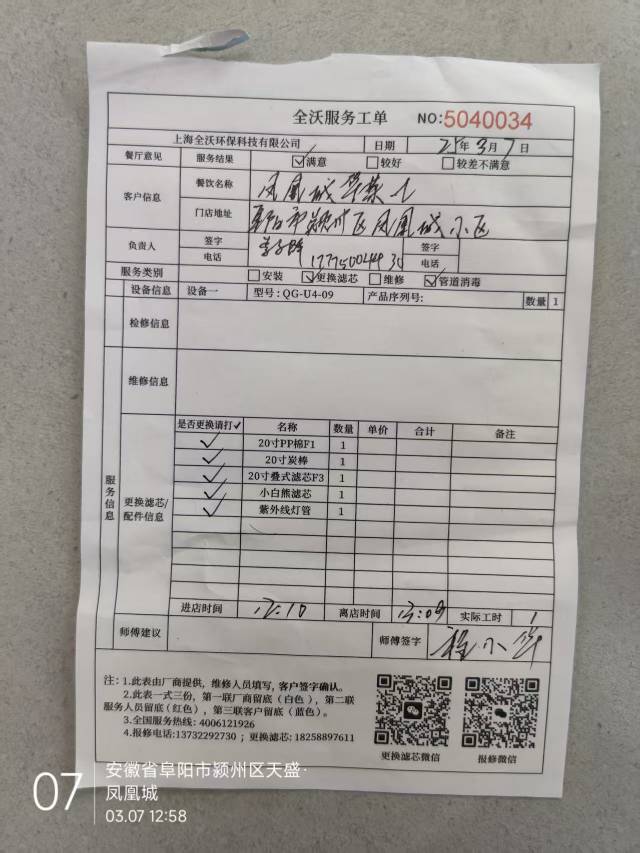 全沃服务工单 NO:5040034
上海全沃环保科技有限公司 日期 年3月7日
餐厅意见 服务结果 ☑满意 □较好 □较差不满意
客户信息 餐饮名称 凤凰城
门店地址 阜阳市颍州区凤凰城小区
负责人 签字 签字
电话 17775004435 电话
服务类别 □安装 ☑更换滤芯 □维修 ☑管道消毒
设备信息 设备一 型号:QG-U4-09 产品序列号: 数量 1
检修信息
维修信息
服务信息
更换滤芯/配件信息
是否更换请打✓ 名称 数量 单价 合计 备注
✓ 20寸PP棉F1 1
✓ 20寸炭棒 1
✓ 20寸叠式滤芯F3 1
✓ 小白熊滤芯 1
✓ 紫外线灯管 1
进店时间 12:10 离店时间 13:09 实际工时 1
师傅建议 师傅签字 程小华
注:1.此表由厂商提供，维修人员填写,客户签字确认。
2.此表一式三份，第一联厂商留底（白色），第二联
服务人员留底(红色），第三联客户留底（蓝色）。
3.全国服务热线: 4006121926
4.报修电话:13732292730 ; 更换滤芯: 18258897611
更换滤芯微信 报修微信
07 安徽省阜阳市颍州区天盛·
凤凰城
03.07 12:58